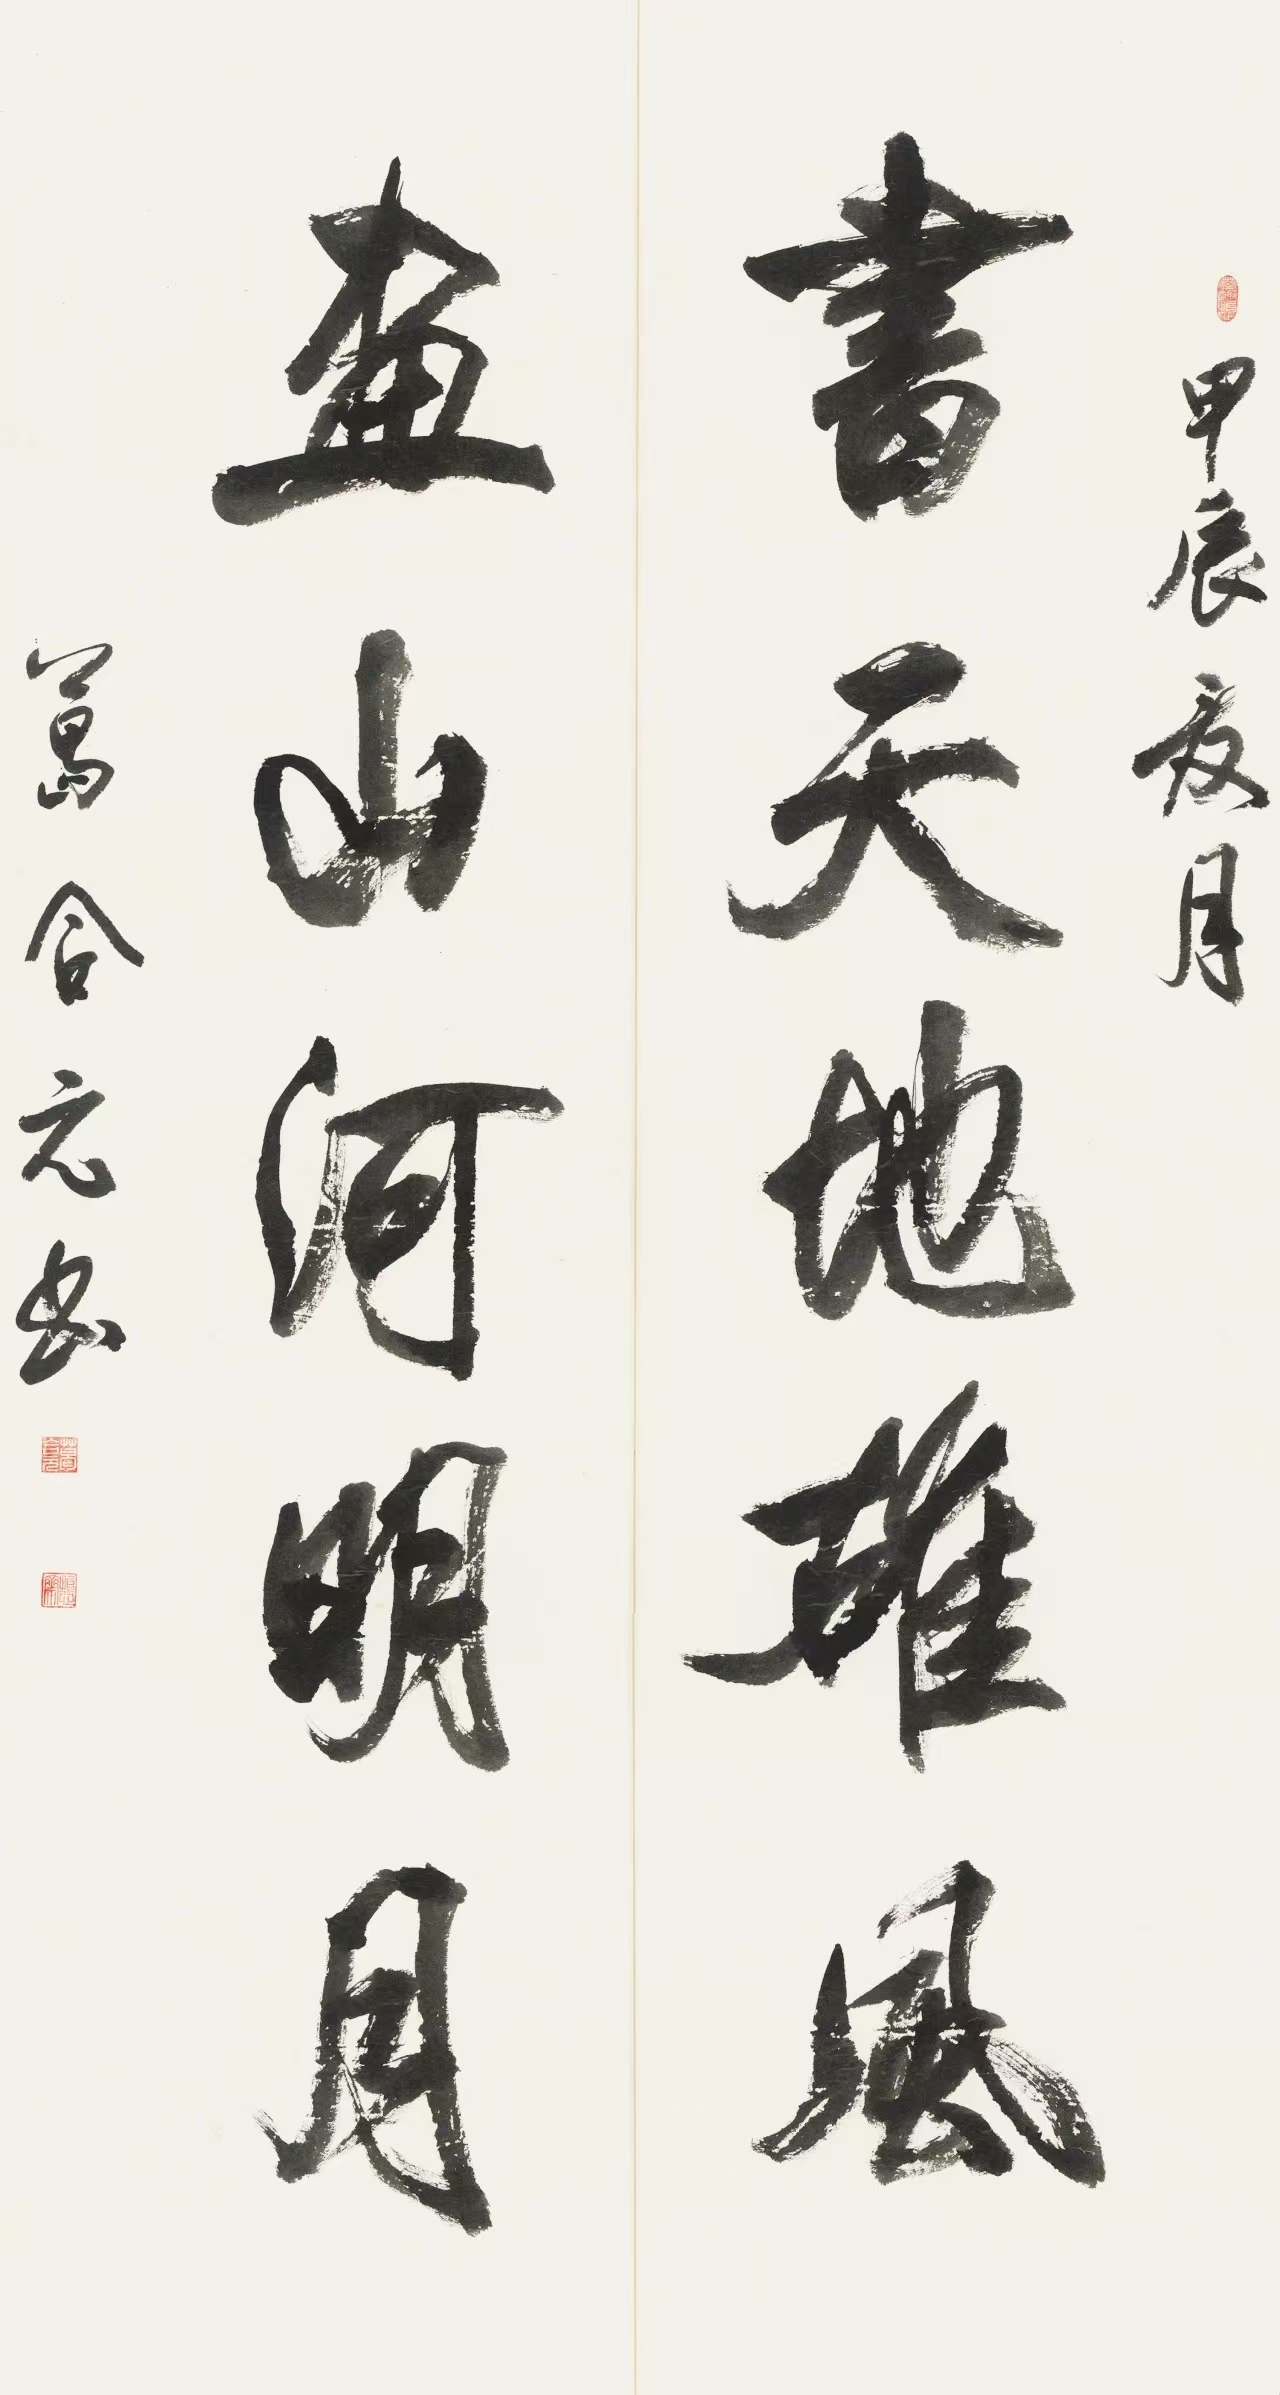 甲辰夏月
書天地雄風
畫山河明月
葛合元书